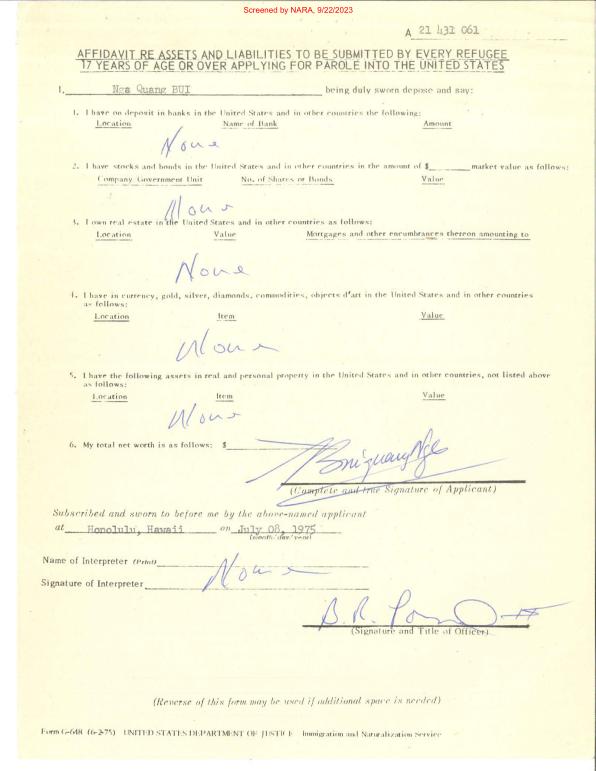 Screened by NARA, 9/22/2023
A 21 431 061
AFFIDAVIT RE ASSETS AND LIABILITIES TO BE SUBMITTED BY EVERY REFUGEE
17 YEARS OF AGE OR OVER APPLYING FOR PAROLE INTO THE UNITED STATES
I, Nga Quang BUI being duly sworn depose and say:
1. I have on deposit in banks in the United States and in other countries the following:
Location Name of Bank Amount
None
2. I have stocks and bonds in the United States and in other countries in the amount of $ market value as follows:
Company Government Unit No. of Shares or Bonds Value
None
3. I own real estate in the United States and in other countries as follows:
Location Value Mortgages and other encumbrances thereon amounting to
None
4. I have in currency, gold, silver, diamonds, commodities, objects d'art in the United States and in other countries
as follows:
Location Item Value
None
5. I have the following assets in real and personal property in the United States and in other countries, not listed above
as follows:
Location Item Value
None
6. My total net worth is as follows: $
Bui quang Nga
(Complete and true Signature of Applicant)
Subscribed and sworn to before me by the above-named applicant
at Honolulu, Hawaii on July 08, 1975
(month/day/year)
Name of Interpreter (Print)
None
Signature of Interpreter
B. R.
(Signature and Title of Officer)
(Reverse of this form may be used if additional space is needed)
Form G-648 (6-2-75) UNITED STATES DEPARTMENT OF JUSTICE Immigration and Naturalization Service